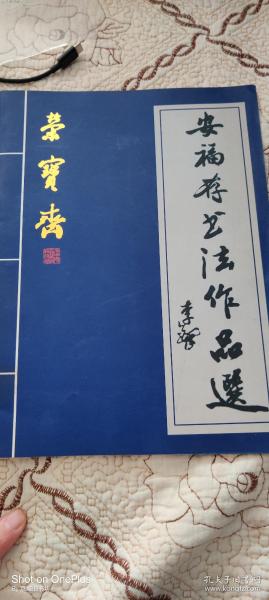 榮寶齋
安福存书法作品選
Shot on OnePlus
孔夫子旧书网